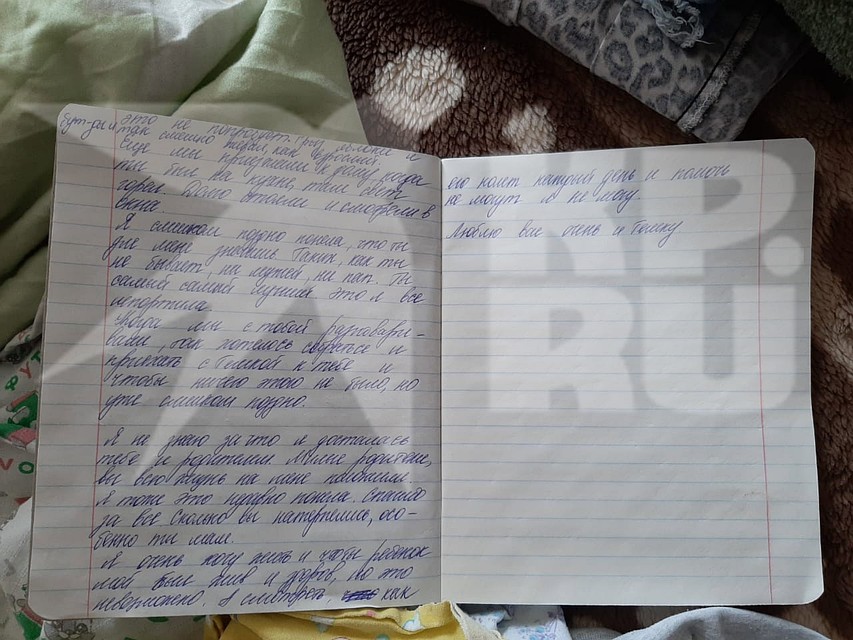 это не попробует. Грыз яблоки и
так смешно ждал, как взрослый.
Еще мы приезжали к дому, когда
ты был на кухне, там свет
горел. Долго стояли и смотрели в
окна.
Я слишком поздно поняла, что ты
для меня значишь. Таких, как ты
не бывает, ни мужей, ни пап. Ты
самый самый лучший это я все
испортила.
Когда мы с тобой разговари-
вали, так хотелось собраться и
приехать с Томкой к тебе и
чтобы ничего этого не было, но
уже слишком поздно.
Я не знаю за что я досталась
тебе и родителям. Милые родители,
вы всю жизнь на меня положили.
Я тоже это поздно поняла. Спасибо
за все сколько вы натерпелись, осо-
бенно ты мам.
Я очень хочу жить и чтобы ребенок
мой был жив и здоров, но это
невозможно. А смотреть, как
его ломит каждый день и помочь
не могут я не могу.
Люблю вас очень и Томку
DP.
RU